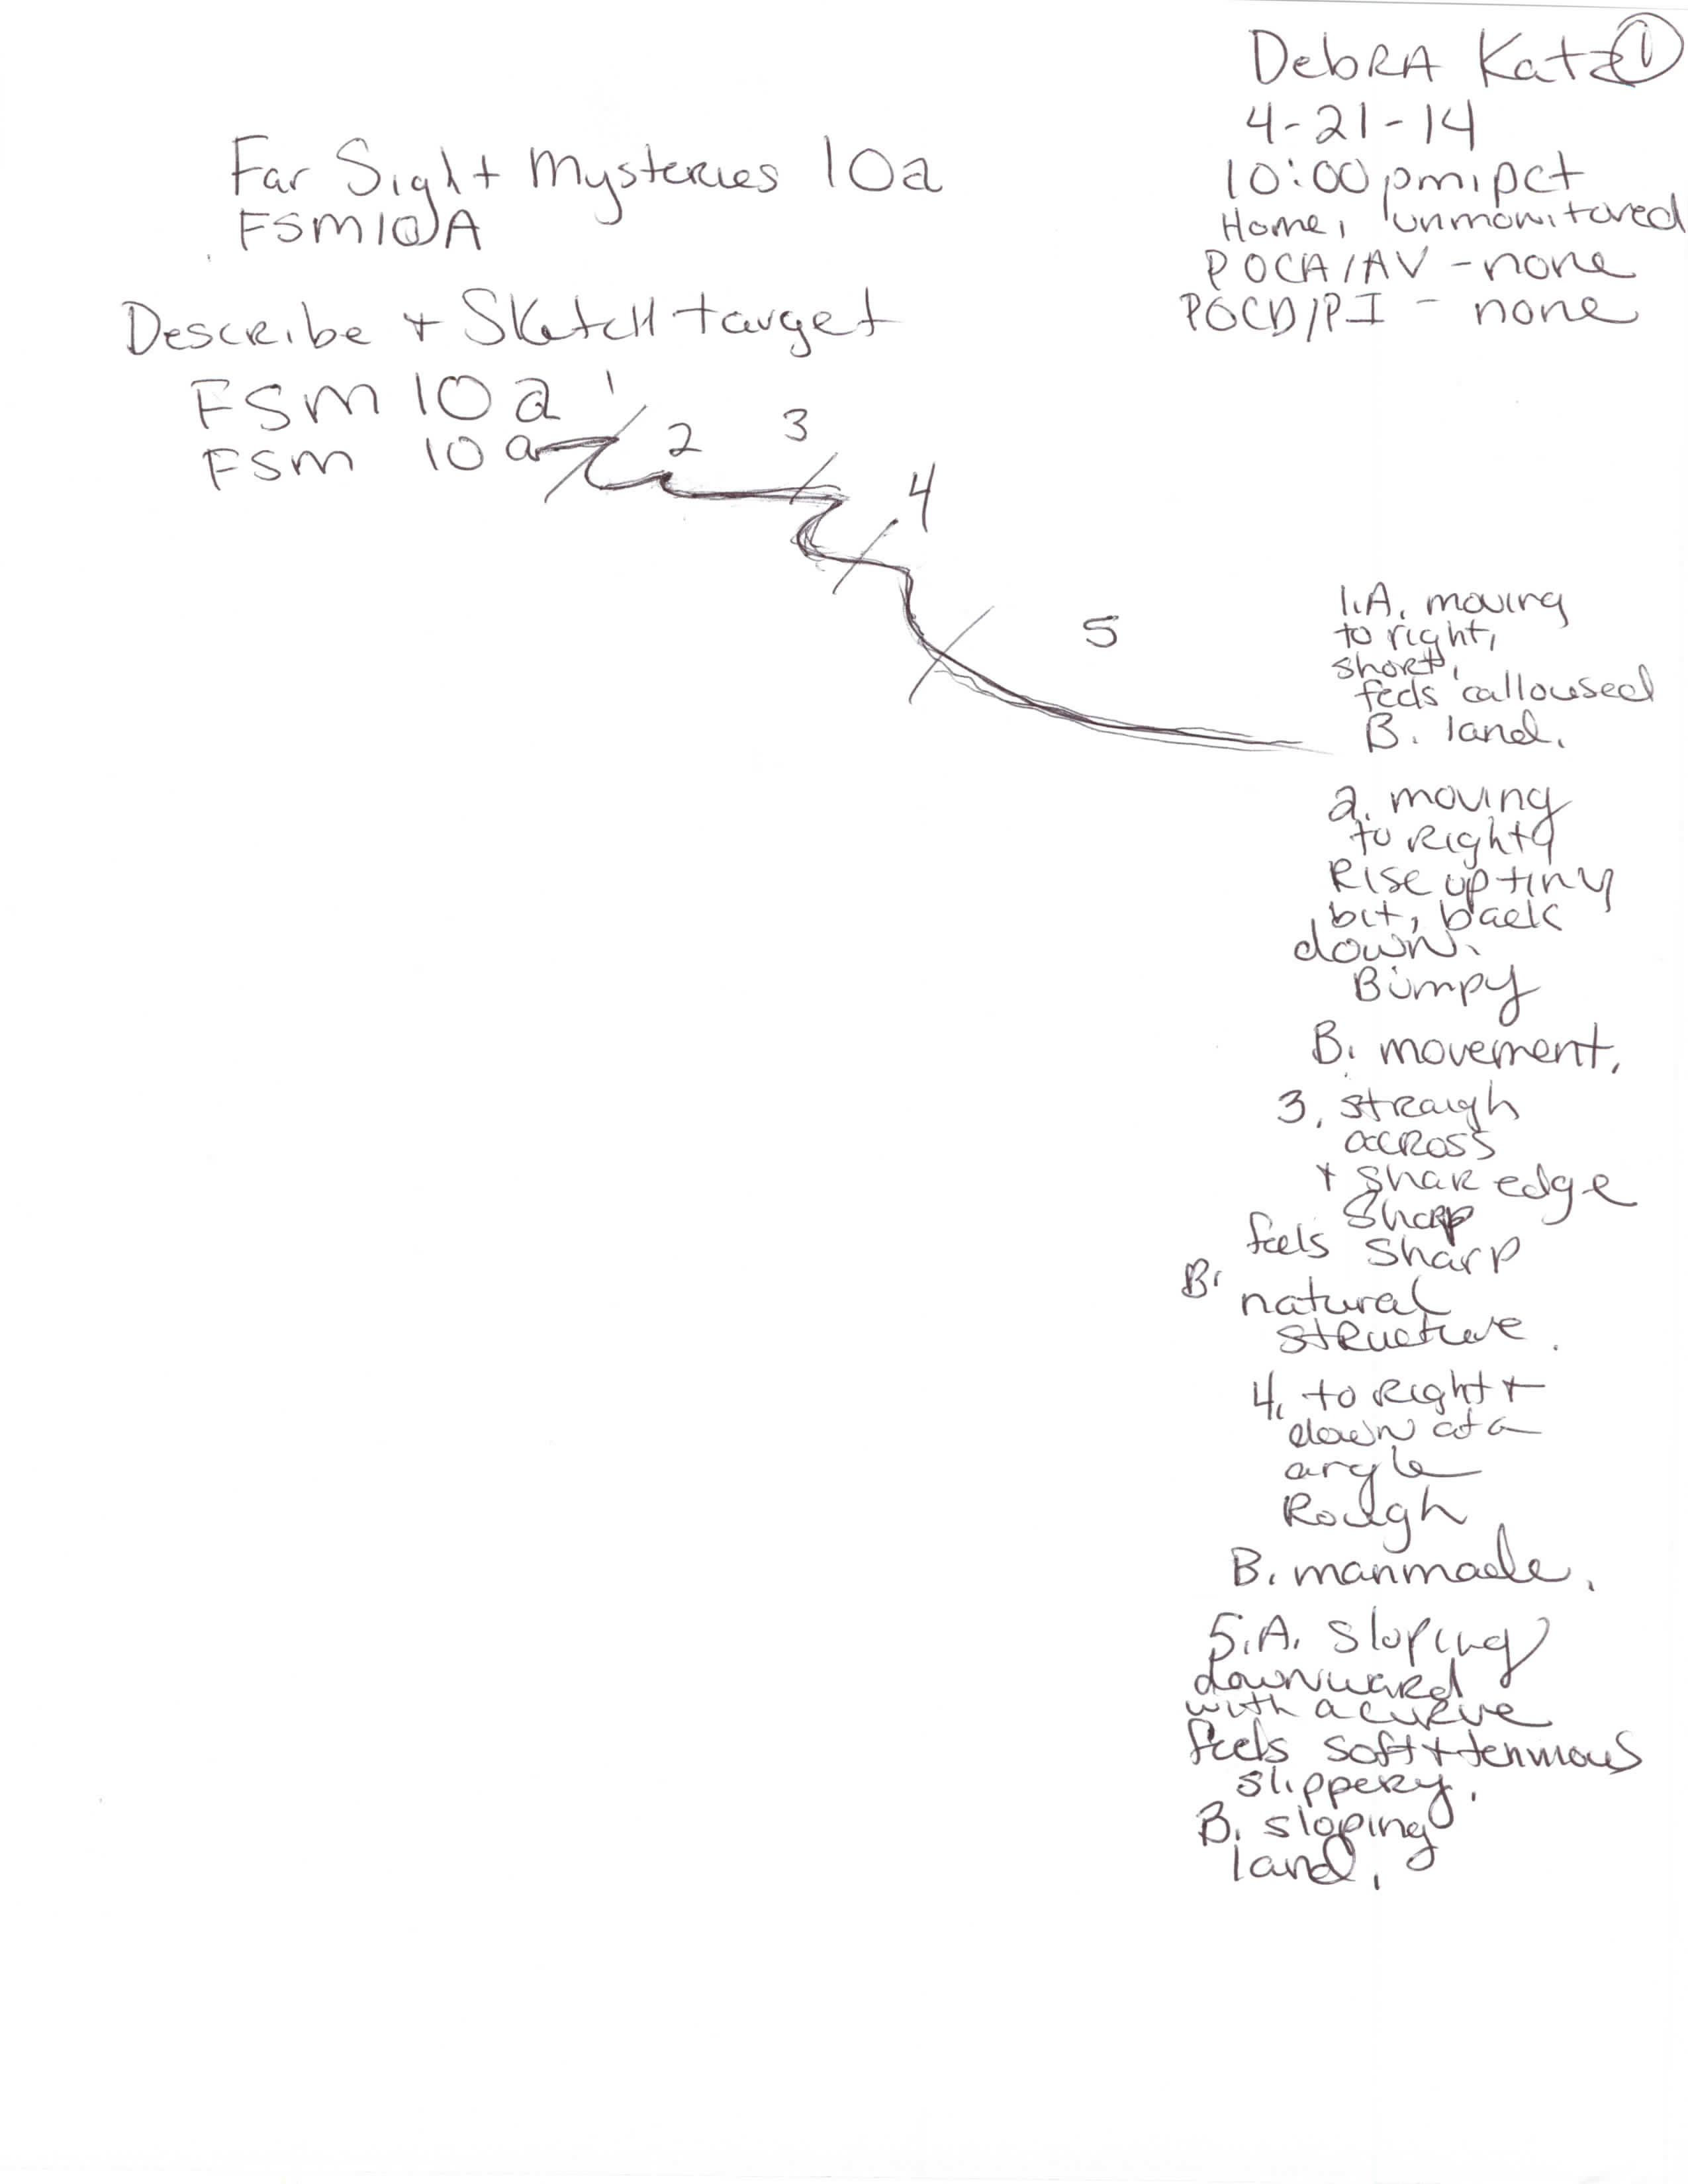 Debra Katz 1
4-21-14
10:00 pm, pct
Home, unmonitored
POCA/AV - none
POCD/PI - none
Far Sight Mysteries 10a
FSM10A
Describe + Sketch target
FSM 10a
FSM 10a
1
2
3
4
5
1.A. moving
to right,
short,
feels calloused
B. land.
2. moving
to right
Rise up tiny
bit, back
down.
Bumpy
B. movement.
3. straigh
across
+ shar edge
sharp
feels sharp
B. natural
structure.
4. to right +
down at a
angle
Rough
B. manmade.
5.A. sloping
downward
with a curve
feels soft +
slippery.
B. sloping
land.